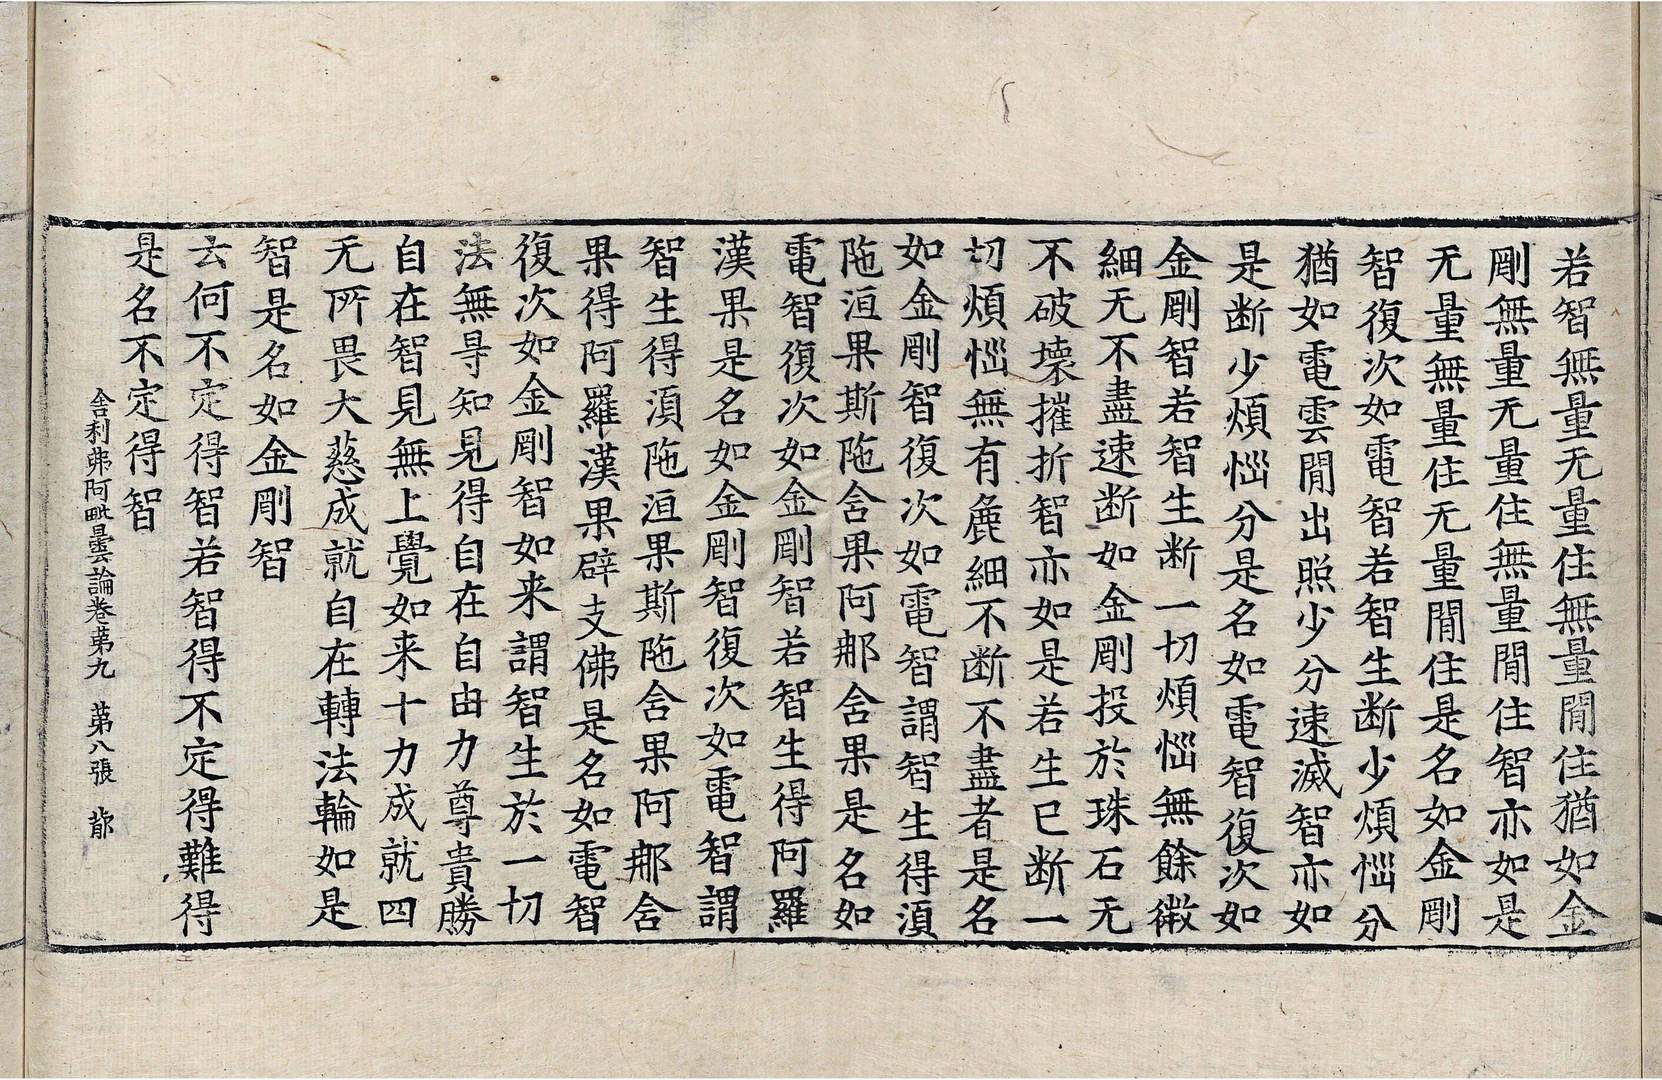 若智無量无量住無量閒住猶如金
剛無量无量住無量閒住智亦如是
无量無量住无量閒住是名如金剛
智復次如電智若智生断少煩惱分
猶如電雲閒出照少分速滅智亦如
是断少煩惱分是名如電智復次如
金剛智若智生断一切煩惱無餘微
細无不盡速断如金剛投於珠石无
不破壞摧折智亦如是若生已断一
切煩惱無有麁細不断不盡者是名
如金剛智復次如電智謂智生得湏
陁洹果斯陁含果阿那含果是名如
電智復次如金剛智若智生得阿羅
漢果是名如金剛智復次如電智謂
智生得湏陁洹果斯陁含果阿那含
果得阿羅漢果辟支佛是名如電智
復次如金剛智如来謂智生於一切
法無㝵知見得自在自由力尊貴勝
自在智見無上覺如来十力成就四
无所畏大慈成就自在轉法輪如是
智是名如金剛智
云何不定得智若智得不定得難得
是名不定得智
舍利弗阿毗曇論卷苐九 苐八張